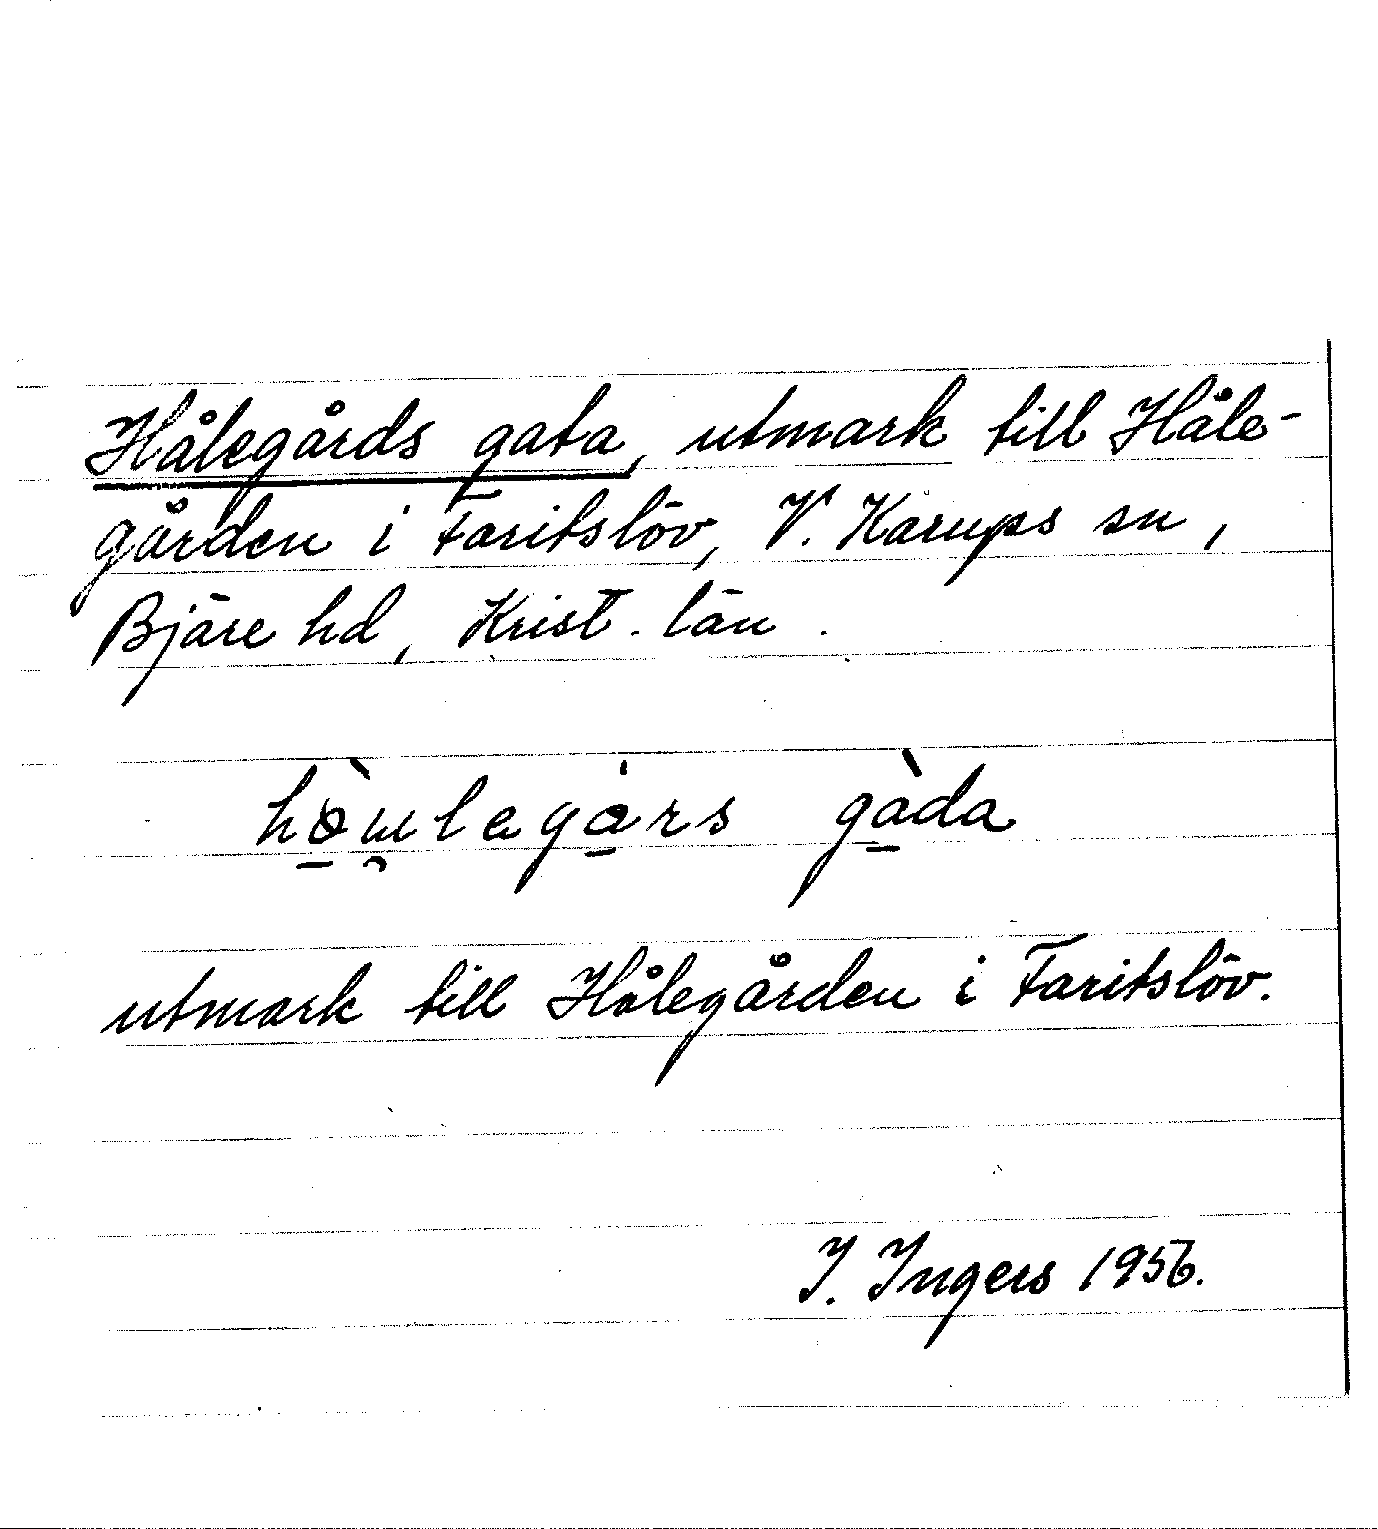 Hålegårds gata, utmark till Håle-
gården i Faritslöv, V. Karups sn,
Bjäre hd, Krist. län.
hòu̯legȧrs gàda
utmark till Hålegården i Faritslöv.
I. Ingers 1956.